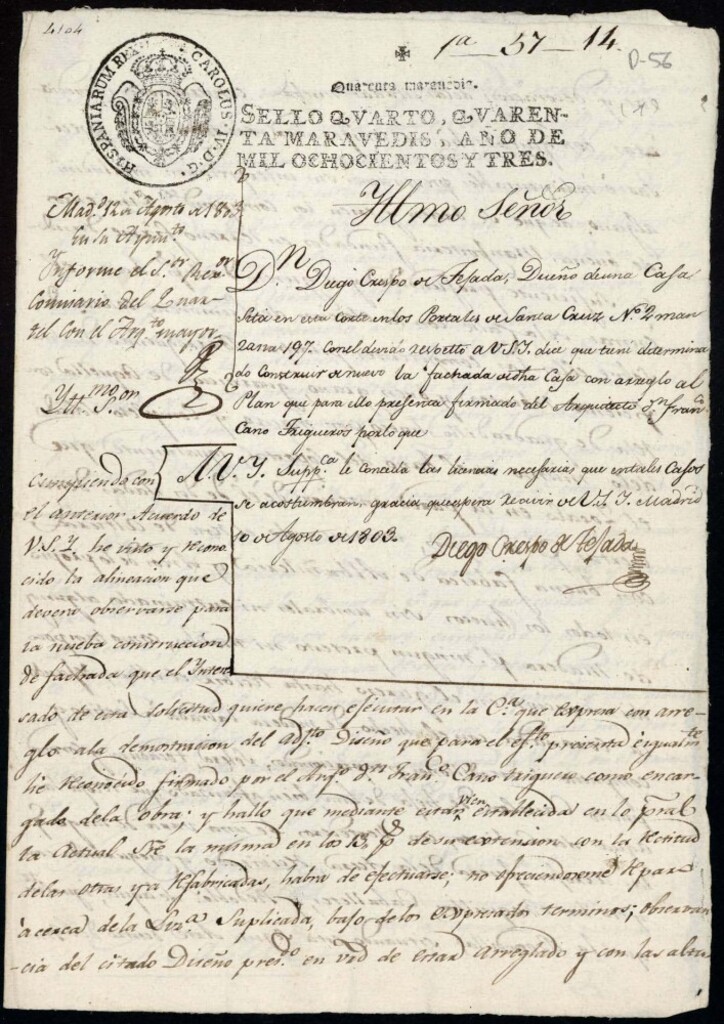 4104
1a 57 14
D-56
HISPANIARUM REX CAROLUS IV D G
Quarenta maravedis.
SELLO QVARTO, QVAREN-
TA MARAVEDIS, AÑO DE
MIL OCHOCIENTOS Y TRES.
Yllmo Señor
Dn Diego Crespo de Tejada, Dueño de una Casa
Sita en esta corte en los Portales de Santa Cruz No 2 man
zana 197. Con el devido respetto a V.S.I. dice que tiene determina
do Construir de nuevo la fachada de dha Casa con arreglo al
Plan que para ello presenta firmado del Arquitecto Dn Franco
Cano Trigueros por lo que
A.V.Y. Suppca le conceda las licencias necesarias que en tales Casos
se acostumbran, gracia que espera recivir de V.S.I. Madrid
10 de Agosto de 1803.
Diego Crespo de Tejada
Madd 12 de Agosto de 1803
En su Ayuntto
Ynforme el Sor Rexor
Comisario del Quar
tel con el Arqto mayor
Yttmo Sor
Cumpliendo con
el anterior Acuerdo de
V.S.Y. he visto y recono
cido la alineacion que
devera observarse para
la nueba construccion
de fachada que el Intere
sado de esta solicitud quiere hacer ejecutar en la Ca que expresa con arre
glo a la demostracion del adjto Diseño que para el efto presenta é igualmte
he reconocido firmado por el Arqto Dn Franco Cano trigueros como encar
gado de la obra; y hallo que mediante estar bien establecida en lo pral
la actual Se la misma en los 15 ps de su extension con la rectitud
de las otras ya refabricadas, habra de efectuarse; no ofreciendoseme reparo
á cerca de la Liza Suplicada, bajo de los expresados terminos; observan
cia del citado Diseño presdo en vrd de estar arreglado y con las adver